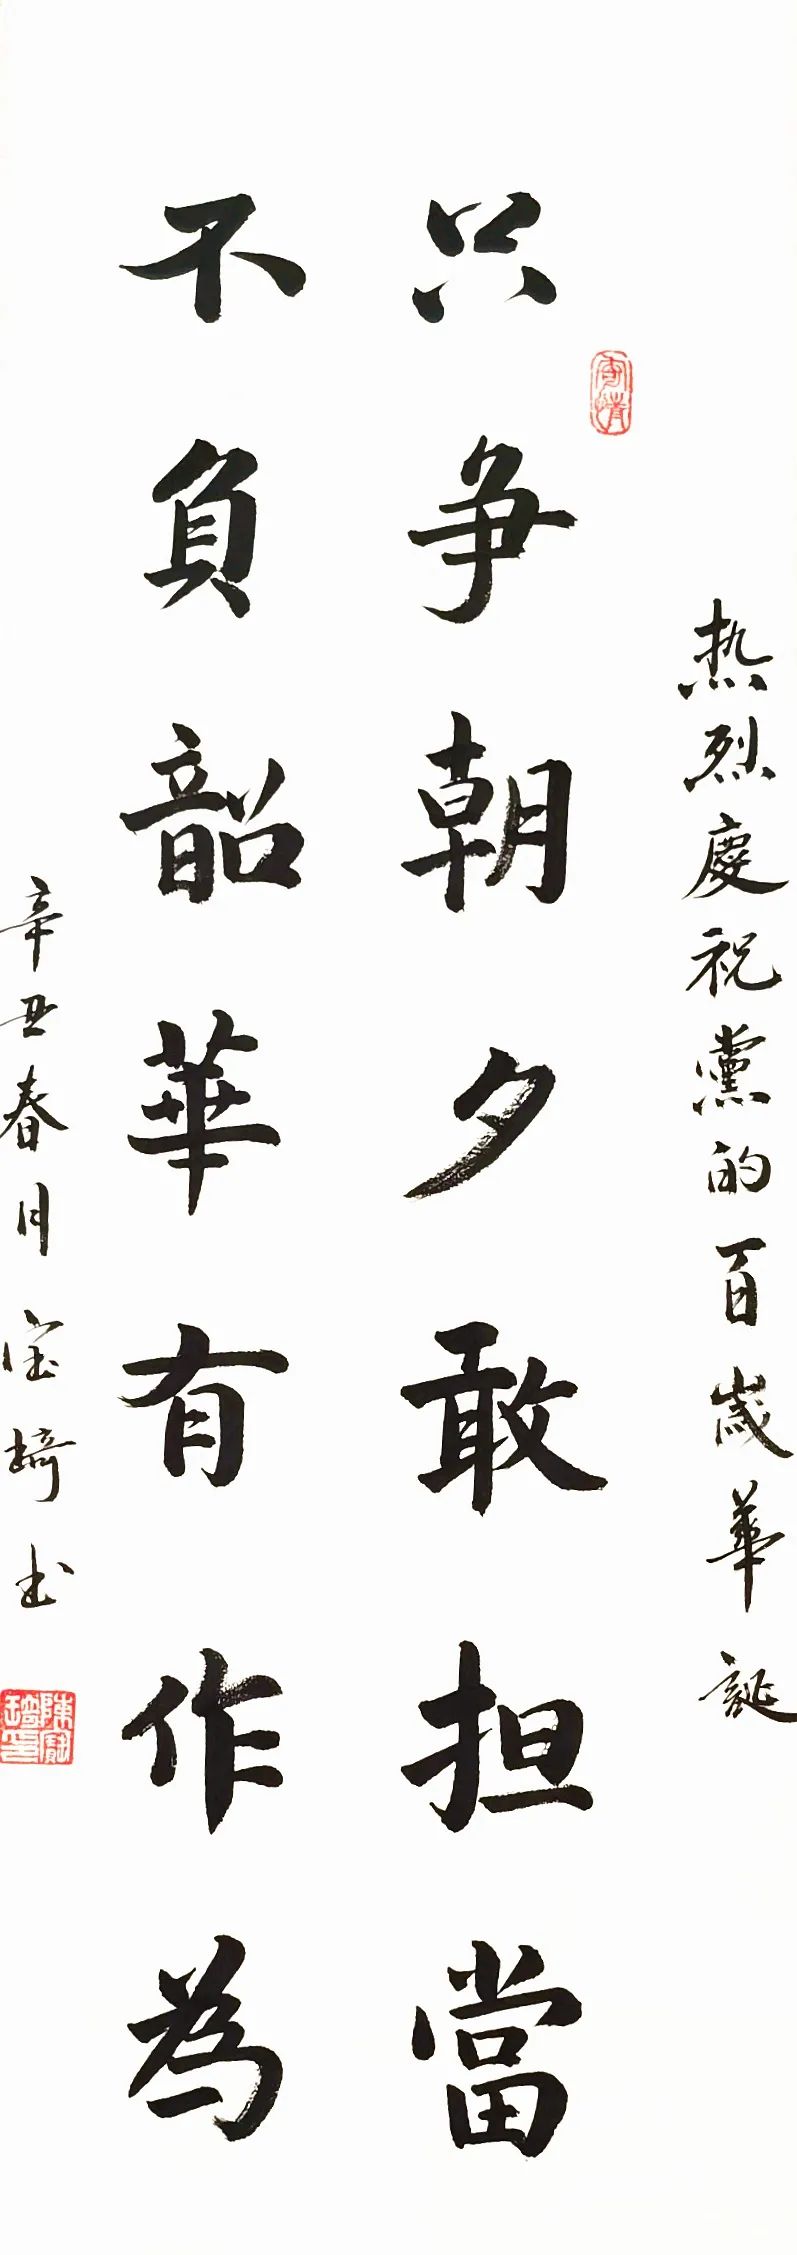 热烈慶祝黨的百歲華誕
只争朝夕敢担當
不負韶華有作為
辛丑春月宝琦书
寄情
陳寶琦印